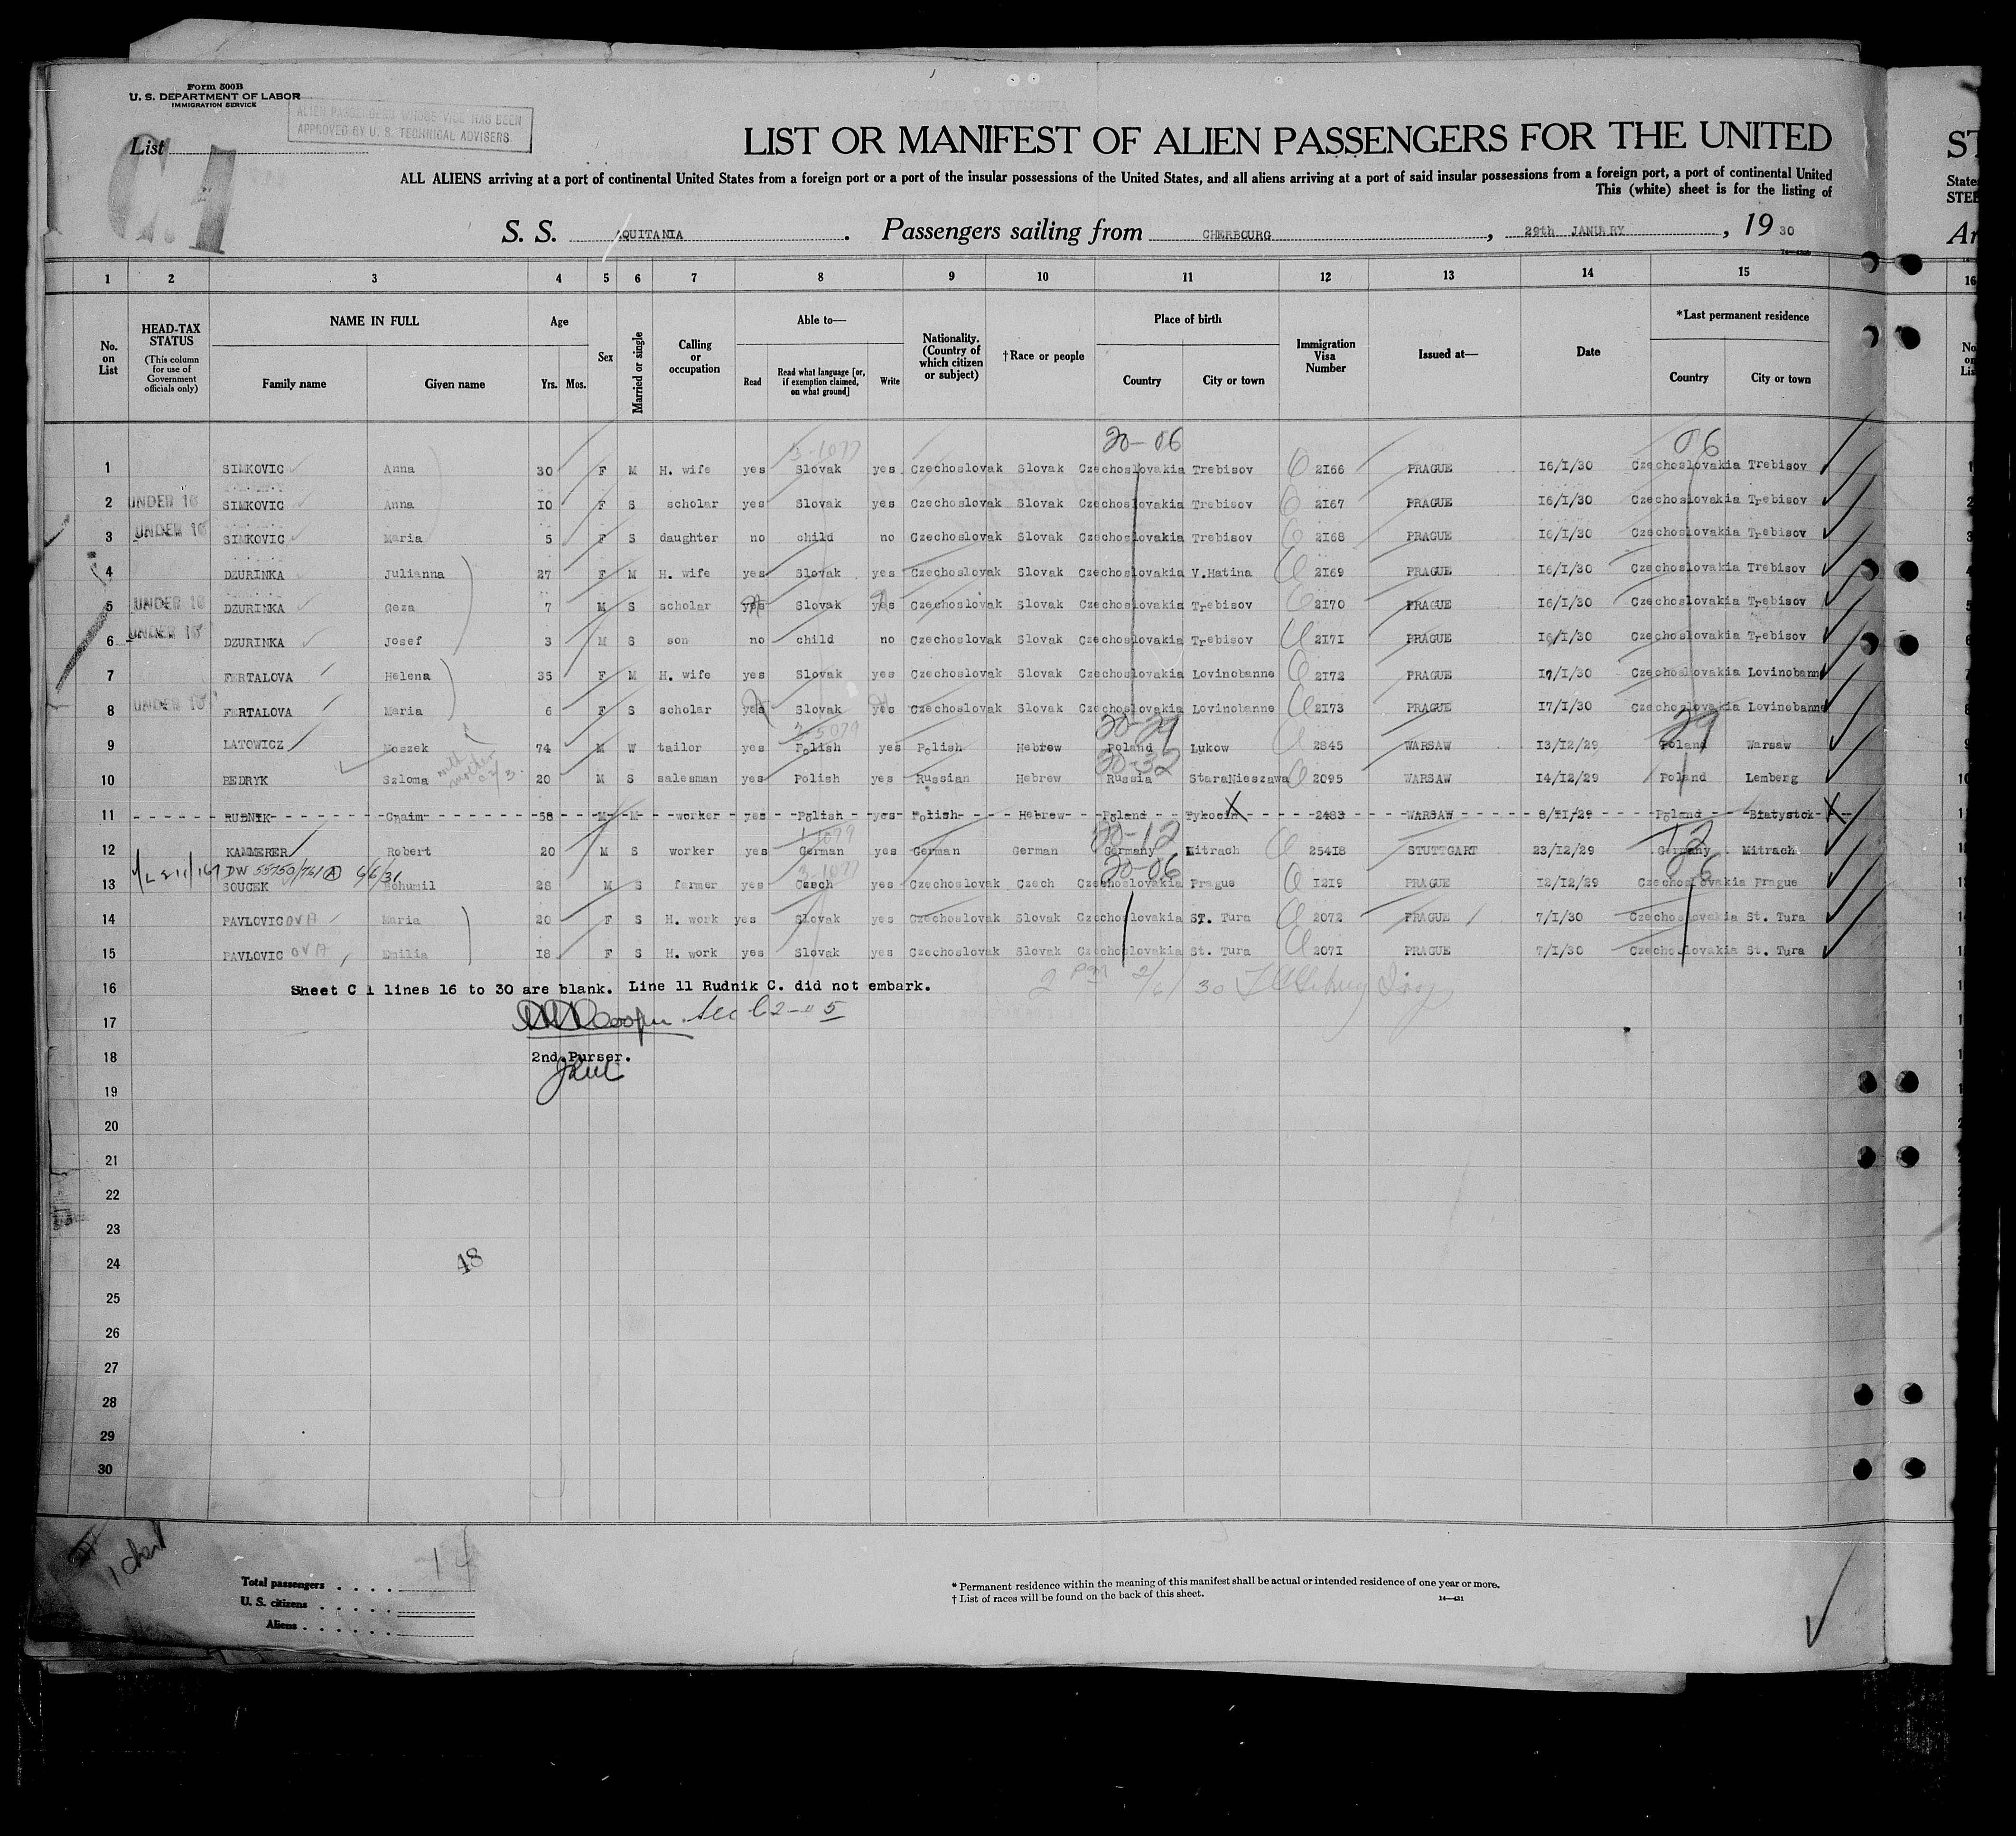 Form 500B
U. S. DEPARTMENT OF LABOR
IMMIGRATION SERVICE
ALIEN PASSENGERS WHOSE VISE HAS BEEN
APPROVED BY U. S. TECHNICAL ADVISERS
List
C1
LIST OR MANIFEST OF ALIEN PASSENGERS FOR THE UNITED
ALL ALIENS arriving at a port of continental United States from a foreign port or a port of the insular possessions of the United States, and all aliens arriving at a port of said insular possessions from a foreign port, a port of continental United
This (white) sheet is for the listing of
S. S. AQUITANIA. Passengers sailing from CHERBOURG, 29th JANUARY, 1930
1 2 3 4 5 6 7 8 9 10 11 12 13 14 15 16
No. on List
HEAD-TAX STATUS (This column for use of Government officials only)
NAME IN FULL Family name Given name
Age Yrs. Mos.
Sex
Married or single
Calling or occupation
Able to— Read Read what language [or, if exemption claimed, on what ground] Write
Nationality. (Country of which citizen or subject)
†Race or people
Place of birth Country City or town
Immigration Visa Number
Issued at—
Date
*Last permanent residence Country City or town
3-1077 20-06 06
1 SIMKOVIC Anna 30 F M H. wife yes Slovak yes Czechoslovak Slovak Czechoslovakia Trebisov 2166 PRAGUE 16/1/30 Czechoslovakia Trebisov
2 UNDER 16 SIMKOVIC Anna 10 F S scholar yes Slovak yes Czechoslovak Slovak Czechoslovakia Trebisov 2167 PRAGUE 16/1/30 Czechoslovakia Trebisov
3 UNDER 16 SIMKOVIC Maria 5 F S daughter no child no Czechoslovak Slovak Czechoslovakia Trebisov 2168 PRAGUE 16/1/30 Czechoslovakia Trebisov
4 DZURINKA Julianna 27 F M H. wife yes Slovak yes Czechoslovak Slovak Czechoslovakia V.Hatina 2169 PRAGUE 16/1/30 Czechoslovakia Trebisov
5 UNDER 16 DZURINKA Geza 7 M S scholar yes Slovak yes Czechoslovak Slovak Czechoslovakia Trebisov 2170 PRAGUE 16/1/30 Czechoslovakia Trebisov
6 UNDER 16 DZURINKA Josef 3 M S son no child no Czechoslovak Slovak Czechoslovakia Trebisov 2171 PRAGUE 16/1/30 Czechoslovakia Trebisov
7 FERTALOVA Helena 35 F M H. wife yes Slovak yes Czechoslovak Slovak Czechoslovakia Lovinobanne 2172 PRAGUE 17/1/30 Czechoslovakia Lovinobanne
8 UNDER 16 FERTALOVA Maria 6 F S scholar yes Slovak yes Czechoslovak Slovak Czechoslovakia Lovinobanne 2173 PRAGUE 17/1/30 Czechoslovakia Lovinobanne
20-29 29
9 LATOWICZ Moszek 74 M W tailor yes Polish yes Polish Hebrew Poland Lukow 2845 WARSAW 13/12/29 Poland Warsaw
20-32
10 BEDRYK Szloma 20 M S salesman yes Polish yes Russian Hebrew Russia StaraNieszawa 2095 WARSAW 14/12/29 Poland Lemberg
11 RUDNIK Chaim 58 M M worker yes Polish yes Polish Hebrew Poland Tykocin 2483 WARSAW 8/11/29 Poland Biatystok
20-12 12
12 KAMMERER Robert 20 M S worker yes German yes German German Germany Mitrach 25418 STUTTGART 23/12/29 Germany Mitrach
DW 55750/761 A 6/6/31 3-1077 20-06 06
13 SOUCEK Bohumil 28 M S farmer yes Czech yes Czechoslovak Czech Czechoslovakia Prague 1219 PRAGUE 12/12/29 Czechoslovakia Prague
14 PAVLOVICOVA Maria 20 F S H. work yes Slovak yes Czechoslovak Slovak Czechoslovakia ST. Tura 2072 PRAGUE 7/1/30 Czechoslovakia St. Tura
15 PAVLOVICOVA Emilia 18 F S H. work yes Slovak yes Czechoslovak Slovak Czechoslovakia St. Tura 2071 PRAGUE 7/1/30 Czechoslovakia St. Tura
16 Sheet C 1 lines 16 to 30 are blank. Line 11 Rudnik C. did not embark.
2 pm 2/6/30
17 Cooper
18 2nd. Purser.
19
20
21
22
23
24 48
25
26
27
28
29
30
Total passengers 14
U. S. citizens
Aliens
* Permanent residence within the meaning of this manifest shall be actual or intended residence of one year or more.
† List of races will be found on the back of this sheet.
14—431